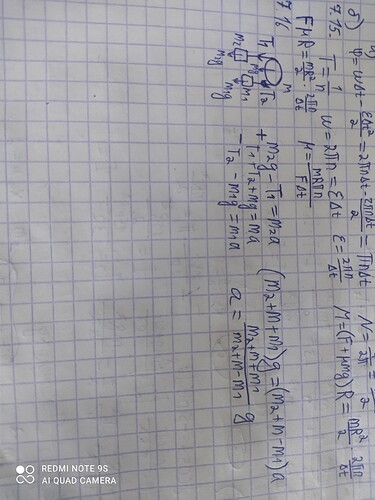 б)
φ = ωΔt - εΔt²/2 = 2πnΔt - 2πnΔt/2 = πnΔt
7.15. T = 1/n ω = 2πn = εΔt ε = 2πn/Δt M = (F + μmg) R = mR²/2 2πn/Δt
FμR = mR²/2 · 2πn/Δt μ = mRπn/FΔt
7.16
T₁ M T₂
m₂ mg m₁
m₂g m₁g
+ m₂g - T₁ = m₂a
T₁ + T₂ + mg = ma
- T₂ - m₁g = m₁a
(m₂ + m + m₁)g = (m₂ + m - m₁)a
a = m₂ + m + m₁/m₂ + m - m₁ g
REDMI NOTE 9S
AI QUAD CAMERA